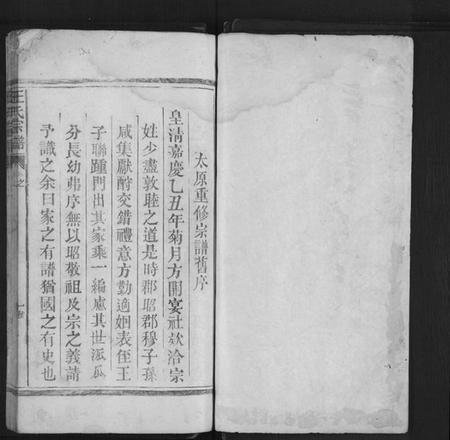 太原重修宗譜舊序
皇清嘉慶乙丑年菊月方開宴社歛洽宗
姓少盡敦睦之道是時郡昭郡穆子孫
咸集獻酧交錯禮意方勤適姻表侄王
子聯踵門出其家乘一編慮其世泒瓜
分長幼弗序無以昭敬祖及宗之義請
予識之余曰家之有譜猶國之有史也
王氏宗譜
卷之